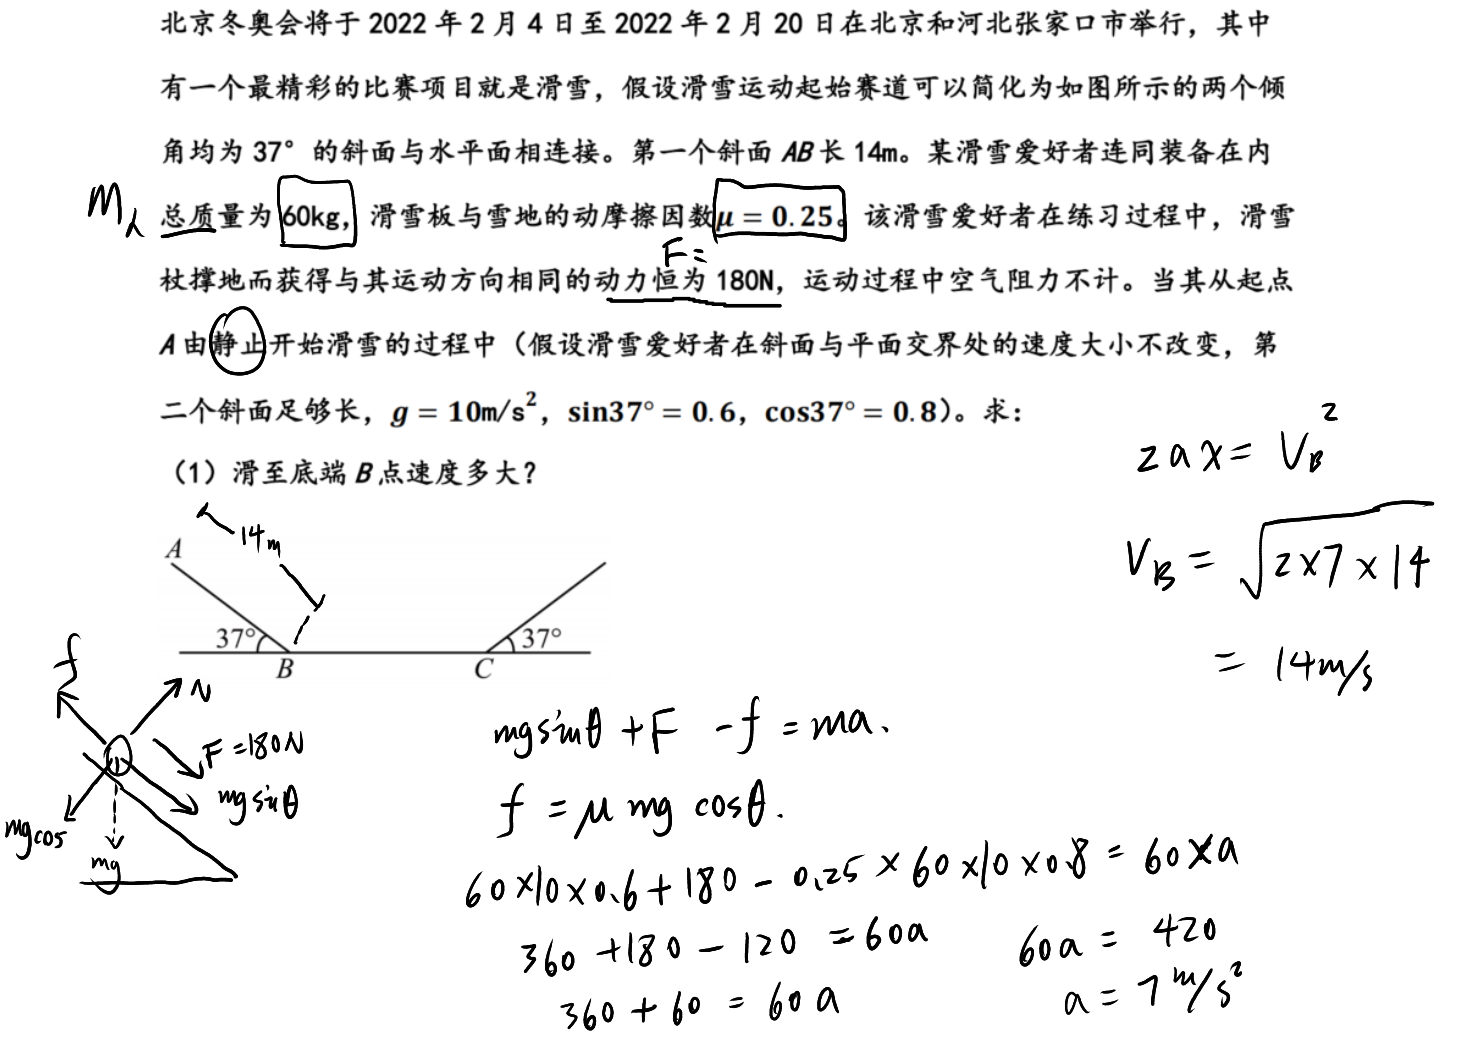 北京冬奥会将于 2022 年 2 月 4 日至 2022 年 2 月 20 日在北京和河北张家口市举行，其中
有一个最精彩的比赛项目就是滑雪，假设滑雪运动起始赛道可以简化为如图所示的两个倾
角均为 37° 的斜面与水平面相连接。第一个斜面 AB 长 14m。某滑雪爱好者连同装备在内
m人
总质量为 60kg，滑雪板与雪地的动摩擦因数 μ = 0.25。该滑雪爱好者在练习过程中，滑雪
F=
杖撑地而获得与其运动方向相同的动力恒为 180N，运动过程中空气阻力不计。当其从起点
A 由静止开始滑雪的过程中（假设滑雪爱好者在斜面与平面交界处的速度大小不改变，第
二个斜面足够长，g = 10m/s²，sin37° = 0.6，cos37° = 0.8）。求：
（1）滑至底端 B 点速度多大？
2ax = V_B²
V_B = √(2×7×14)
= 14m/s
14m
A
37°
B
C
37°
f
N
F=180N
mgsinθ
mgcos
mg
mgsinθ + F - f = ma.
f = μ mg cosθ.
60×10×0.6+180 - 0.25×60×10×0.8 = 60×a
360 +180 - 120 = 60a
360 + 60 = 60a
60a = 420
a = 7m/s²